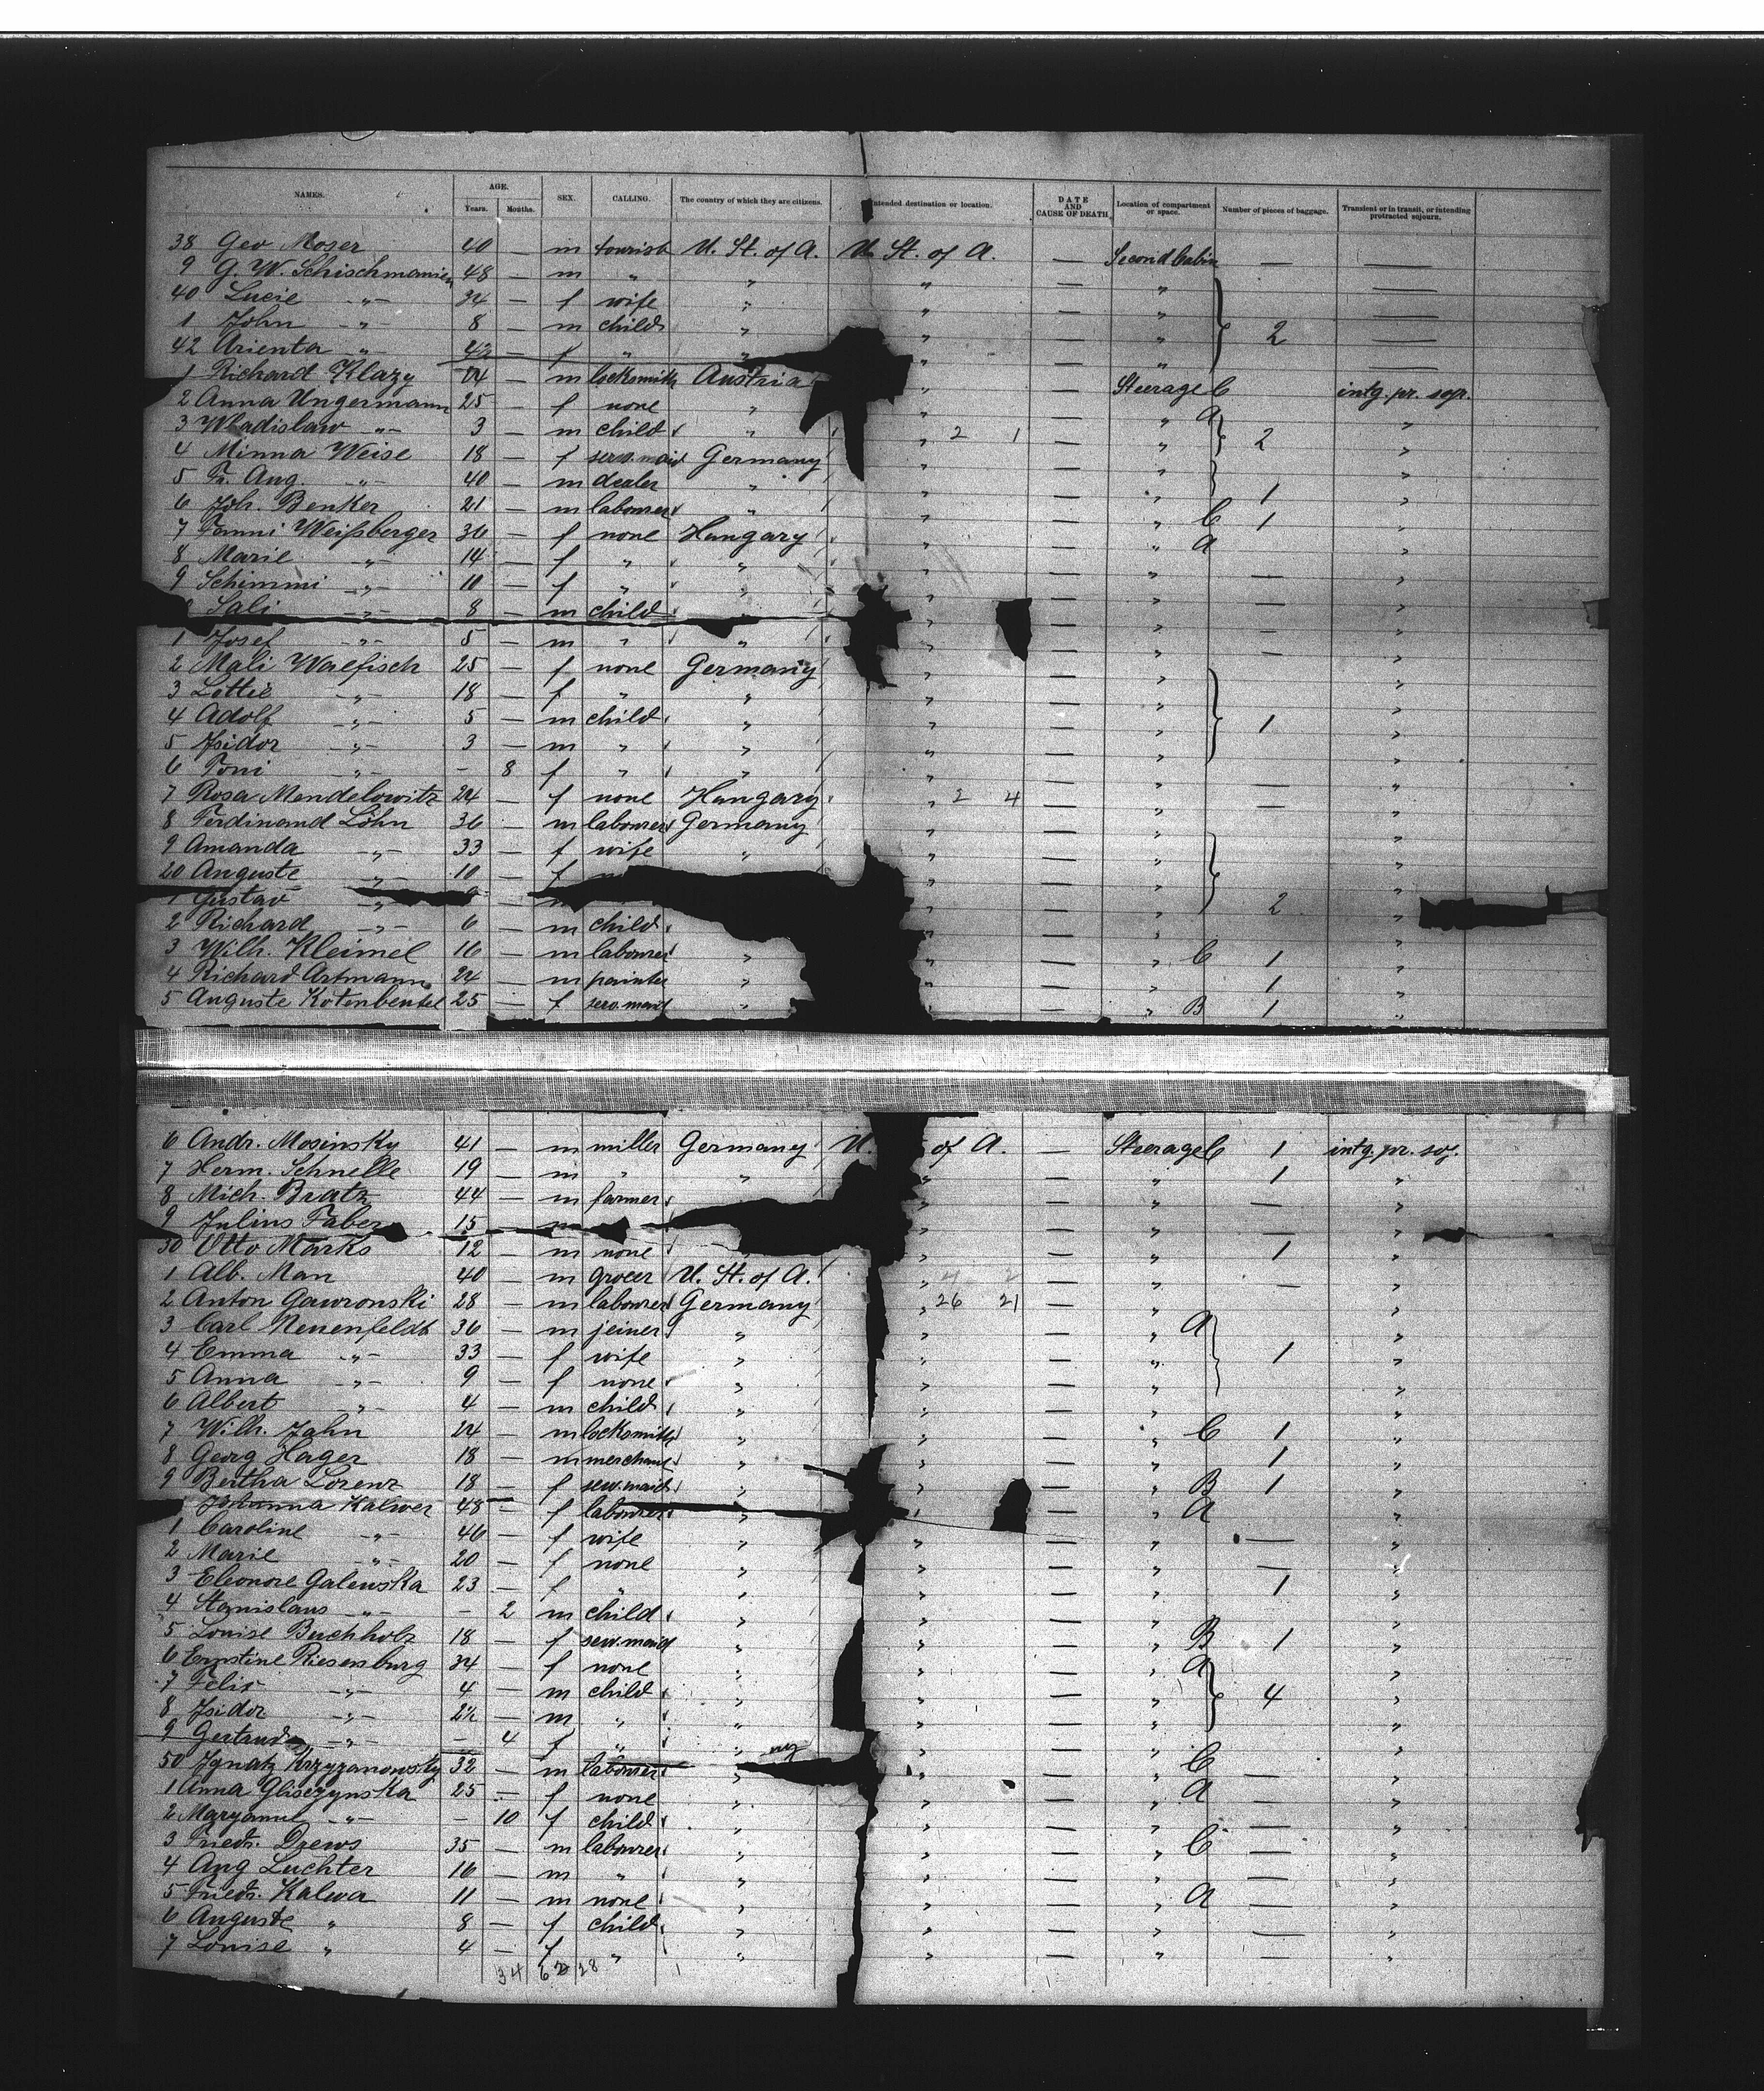 NAMES. AGE. Years. Months. SEX. CALLING. The country of which they are citizens. Intended destination or location. DATE AND CAUSE OF DEATH Location of compartment or space. Number of pieces of baggage. Transient or in transit, or intending protracted sojourn.
38 Geo Moser 40 — m tourist U. St. of A. U. St. of A. — Second Cabin — —
9 G. W. Schischmanien 48 — m " " " — " —
40 Lucie -"- 34 — f wife " " — " —
1 John -"- 8 — m child " " — " 2 —
42 Arienta " f " " " — " —
1 Richard Klazy 24 — m locksmith Austria " — Steerage C intg. pr. soj.
2 Anna Ungermann 25 — f none " " — " a "
3 Wladislaw -"- 3 — m child " " 2 1 — " 2 "
4 Minna Weise 18 — f serv. maid Germany " — " "
5 Fr. Aug. -"- 40 — m dealer " " — " 1 "
6 Joh. Benker 21 — m labourer " " — " C 1 "
7 Fanni Weißberger 36 — f none Hungary " — " a "
8 Marie -"- 14 — f " " " — " — "
9 Schimmi -"- 10 — f " " " — " — "
Sali -"- 8 — m child " — " — "
1 Josef -"- 5 — m " " " — " — "
2 Mali Walfisch 25 — f none Germany " — " "
3 Lottie -"- 18 — f " " " — " "
4 Adolf -"- 5 — m child " " — " 1 "
5 Isidor -"- 3 — m " " " — " "
6 Toni -"- — 8 f " " " — " — "
7 Rosa Mendelowitz 24 — f none Hungary " 2 4 — " — "
8 Ferdinand Löhn 36 — m labourer Germany " — " "
9 Amanda -"- 33 — f wife " " — " "
20 Auguste -"- 10 — f " — " "
1 Gustav -"- " — " 2 "
2 Richard -"- 6 — m child — " "
3 Wilh. Kleimel 16 — m labourer " " — " C 1 "
4 Richard Artmann 24 — m painter " " — " 1 "
5 Auguste Kotenbeutel 25 — f serv. maid " — " B 1 "
6 Andr. Mosinsky 41 — m miller Germany U. of A. — Steerage C 1 intg. pr. soj.
7 Herm. Schnelle 19 — m " " " — " 1 "
8 Mich. Bratz 44 — m farmer " — " — "
9 Julius Faber 15 — m " — " — "
30 Otto Marks 12 — m none " — " 1 "
1 Alb. Man 40 — m grocer U. St. of A. " 4 2 — " — "
2 Anton Gawronski 28 — m labourer Germany " 26 21 — " "
3 Carl Neuenfeldt 36 — m joiner " " — " a "
4 Emma -"- 33 — f wife " " — " 1 "
5 Anna -"- 9 — f none " " — " "
6 Albert -"- 4 — m child " " — " "
7 Wilh. Jahn 24 — m locksmith " " — " C 1 "
8 Georg Hager 18 — m merchant " " — " 1 "
9 Bertha Lorenz 18 — f serv. maid " " — " B 1 "
Johanna Kalwer 48 — f labourer " " — " a "
1 Caroline -"- 46 — f wife " " — " — "
2 Marie -"- 20 — f none " " — " — "
3 Eleonore Galewska 23 — f " " " — " 1 "
4 Stanislaus -"- — 2 m child " " — " "
5 Louise Buchholz 18 — f serv. maid " " — " B 1 "
6 Ernstine Riesenburg 34 — f none " " — " a "
7 Felix -"- 4 — m child " " — " 4 "
8 Isidor -"- 2½ — m " " " — " "
9 Gertrud -"- — 4 f " " " — " "
50 Ignatz Krzyzanowsky 32 — m labourer " " — " C — "
1 Anna Gliszczynska 25 — f none " " — " a — "
2 -"- — 10 f child " " — " — "
3 Friedr. Drews 35 — m labourer " " — " C — "
4 Aug Luchter 16 — m " " " — " — "
5 Friedr. Kalwa 11 — m none " " — " a — "
6 Auguste " 8 — f child " " — " — "
7 Louise " 4 — f " " " — " — "
34 28